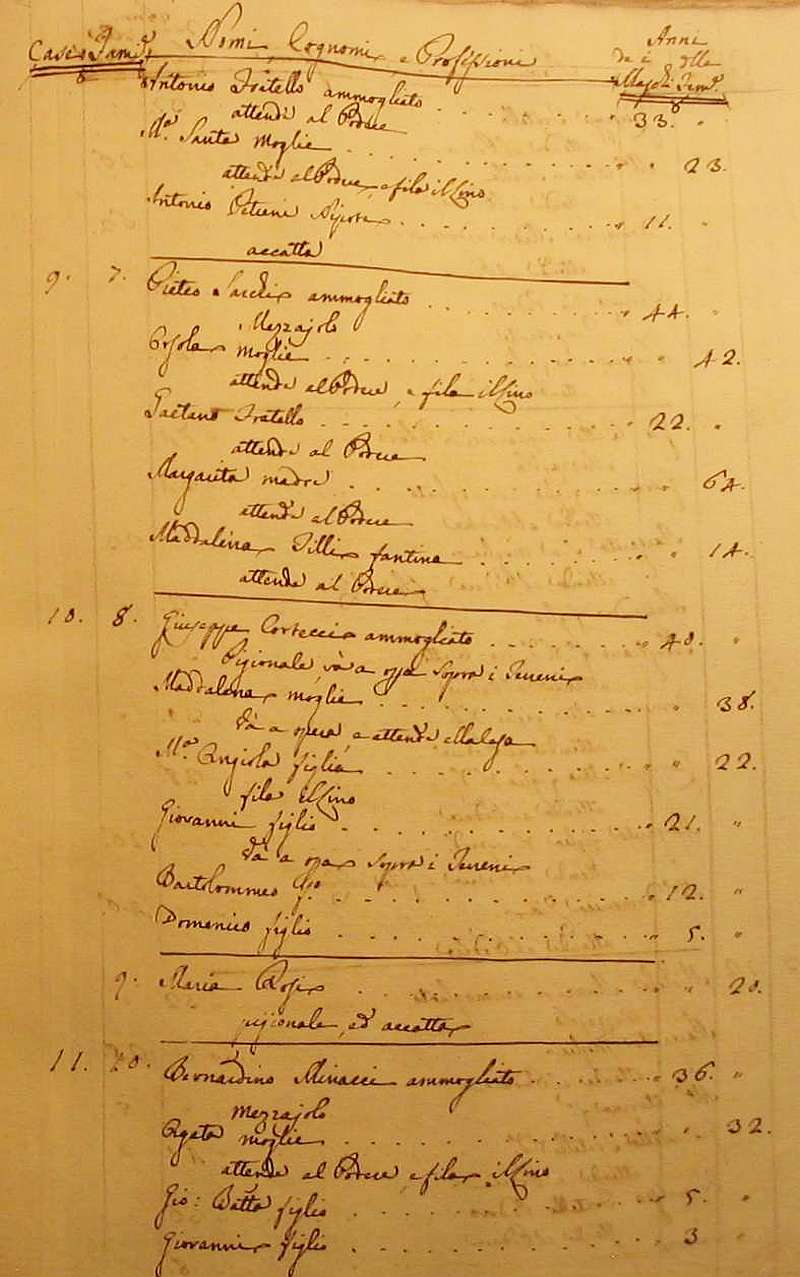 Case Fam.e Nomi, Cognomi, e Professioni Anni
de i delle
Maschi Fem.e
Antonio Fratello ammogliato . . . . . . . 33. "
attende al Podere
M.a Santa Moglie . . . . . . . . . " 23.
attende al Podere, e fila il Lino
Antonio Nipote . . . . . . . . . 11. "
accatta
9. 7. Pietro Sacchi ammogliato . . . . . . . 44. "
Mezzajolo
Orsola moglie . . . . . . . . . " 42.
attende al Podere, e fila il Lino
Gaetano Fratello . . . . . . . . . 22. "
attende al Podere
Margarita madre . . . . . . . . . " 64.
attende al Podere
Maddalena Tilli fantina . . . . . . . " 14.
attende al Podere
10. 8. Giuseppe Cortecci ammogliato . . . . . . . 40. "
Pigionale, và a opra sopra i Terreni
Maddalena moglie . . . . . . . . . " 38.
Và a opera, e attende alla Casa
M.a Angiola figlia . . . . . . . . . " 22.
fila il Lino
Giovanni figlio . . . . . . . . . 21. "
Và a opra sopra i Terreni
Bartolommeo f.o . . . . . . . . . 12. "
Domenico figlio . . . . . . . . . 5. "
9. Maria Rosi . . . . . . . . . " 20.
pigionale, ed accatta
11. 10. Bernardino Minacci ammogliato . . . . . . 36. "
Mezzajolo
Agata moglie . . . . . . . . . " 32.
attende al Podere, e fila il Lino
Gio: Batta figlio . . . . . . . . . 5. "
Giovanni figlio . . . . . . . . . 3 "